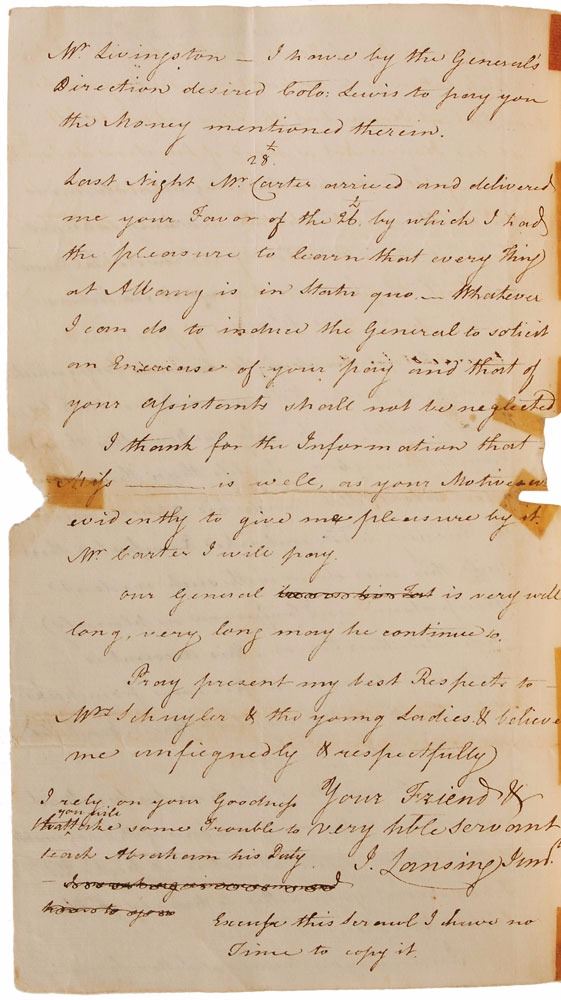 Mr. Livingston — I have by the General's
Direction desired Colo: Lewis to pay you
the Money mentioned therein.
28th.
Last Night Mr. Carter arrived and delivered
me your Favor of the 26th. by which I had
the pleasure to learn that every Thing
at Albany is in Statu quo. — Whatever
I can do to induce the General to solicit
an Encrease of your pay and that of
your assistants shall not be neglected
I thank for the Information that
Miss ——— is well, as your Motives
evidently to give me pleasure by it.
Mr. Carter I will pay.
Our General is very well
long, very long may he continue so.
Pray present my best Respects to —
Mrs. Schuyler & the young Ladies. & believe
me unfiegnedly & respectfully
Your Friend &
very hble Servant
J. Lansing Junr.
I rely on your Goodness
you will
that take some Trouble to
teach Abraham his Duty
Excuse this Scrawl I have no
Time to copy it.